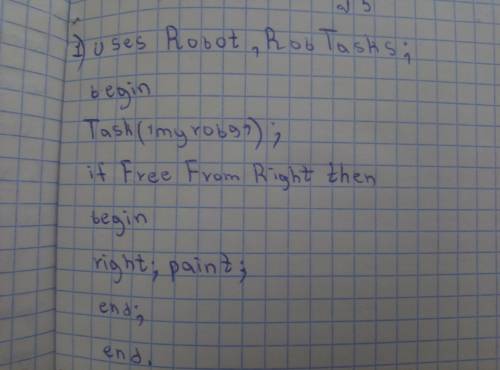 1) uses Robot, RobTasks;
begin
Task('myrob9');
if Free From Right then
begin
right; paint;
end;
end.